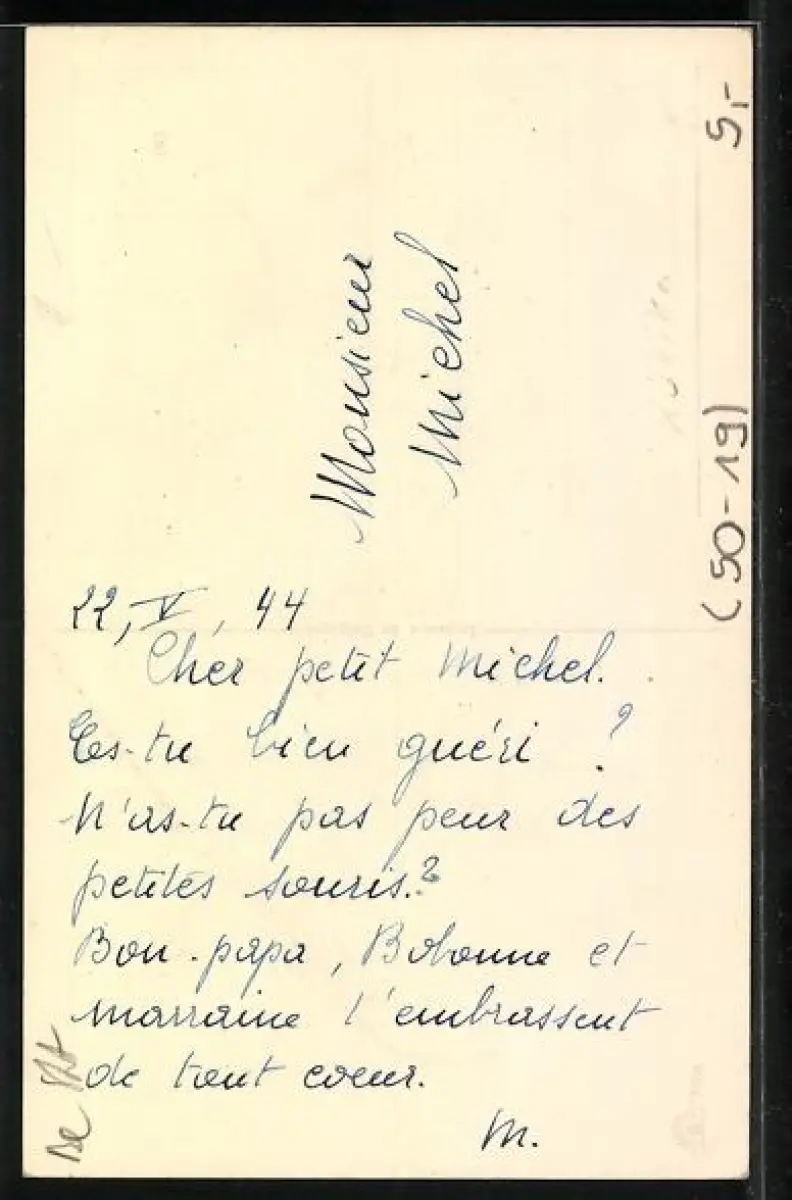 Monsieur
Michel
22, V, 44
Cher petit Michel.
Es-tu bien guéri ?
N'as-tu pas peur des
petites souris.?
Bon-papa, Bobonne et
marraine t'embrassent
de tout coeur.
M.
5,-
(50-19)